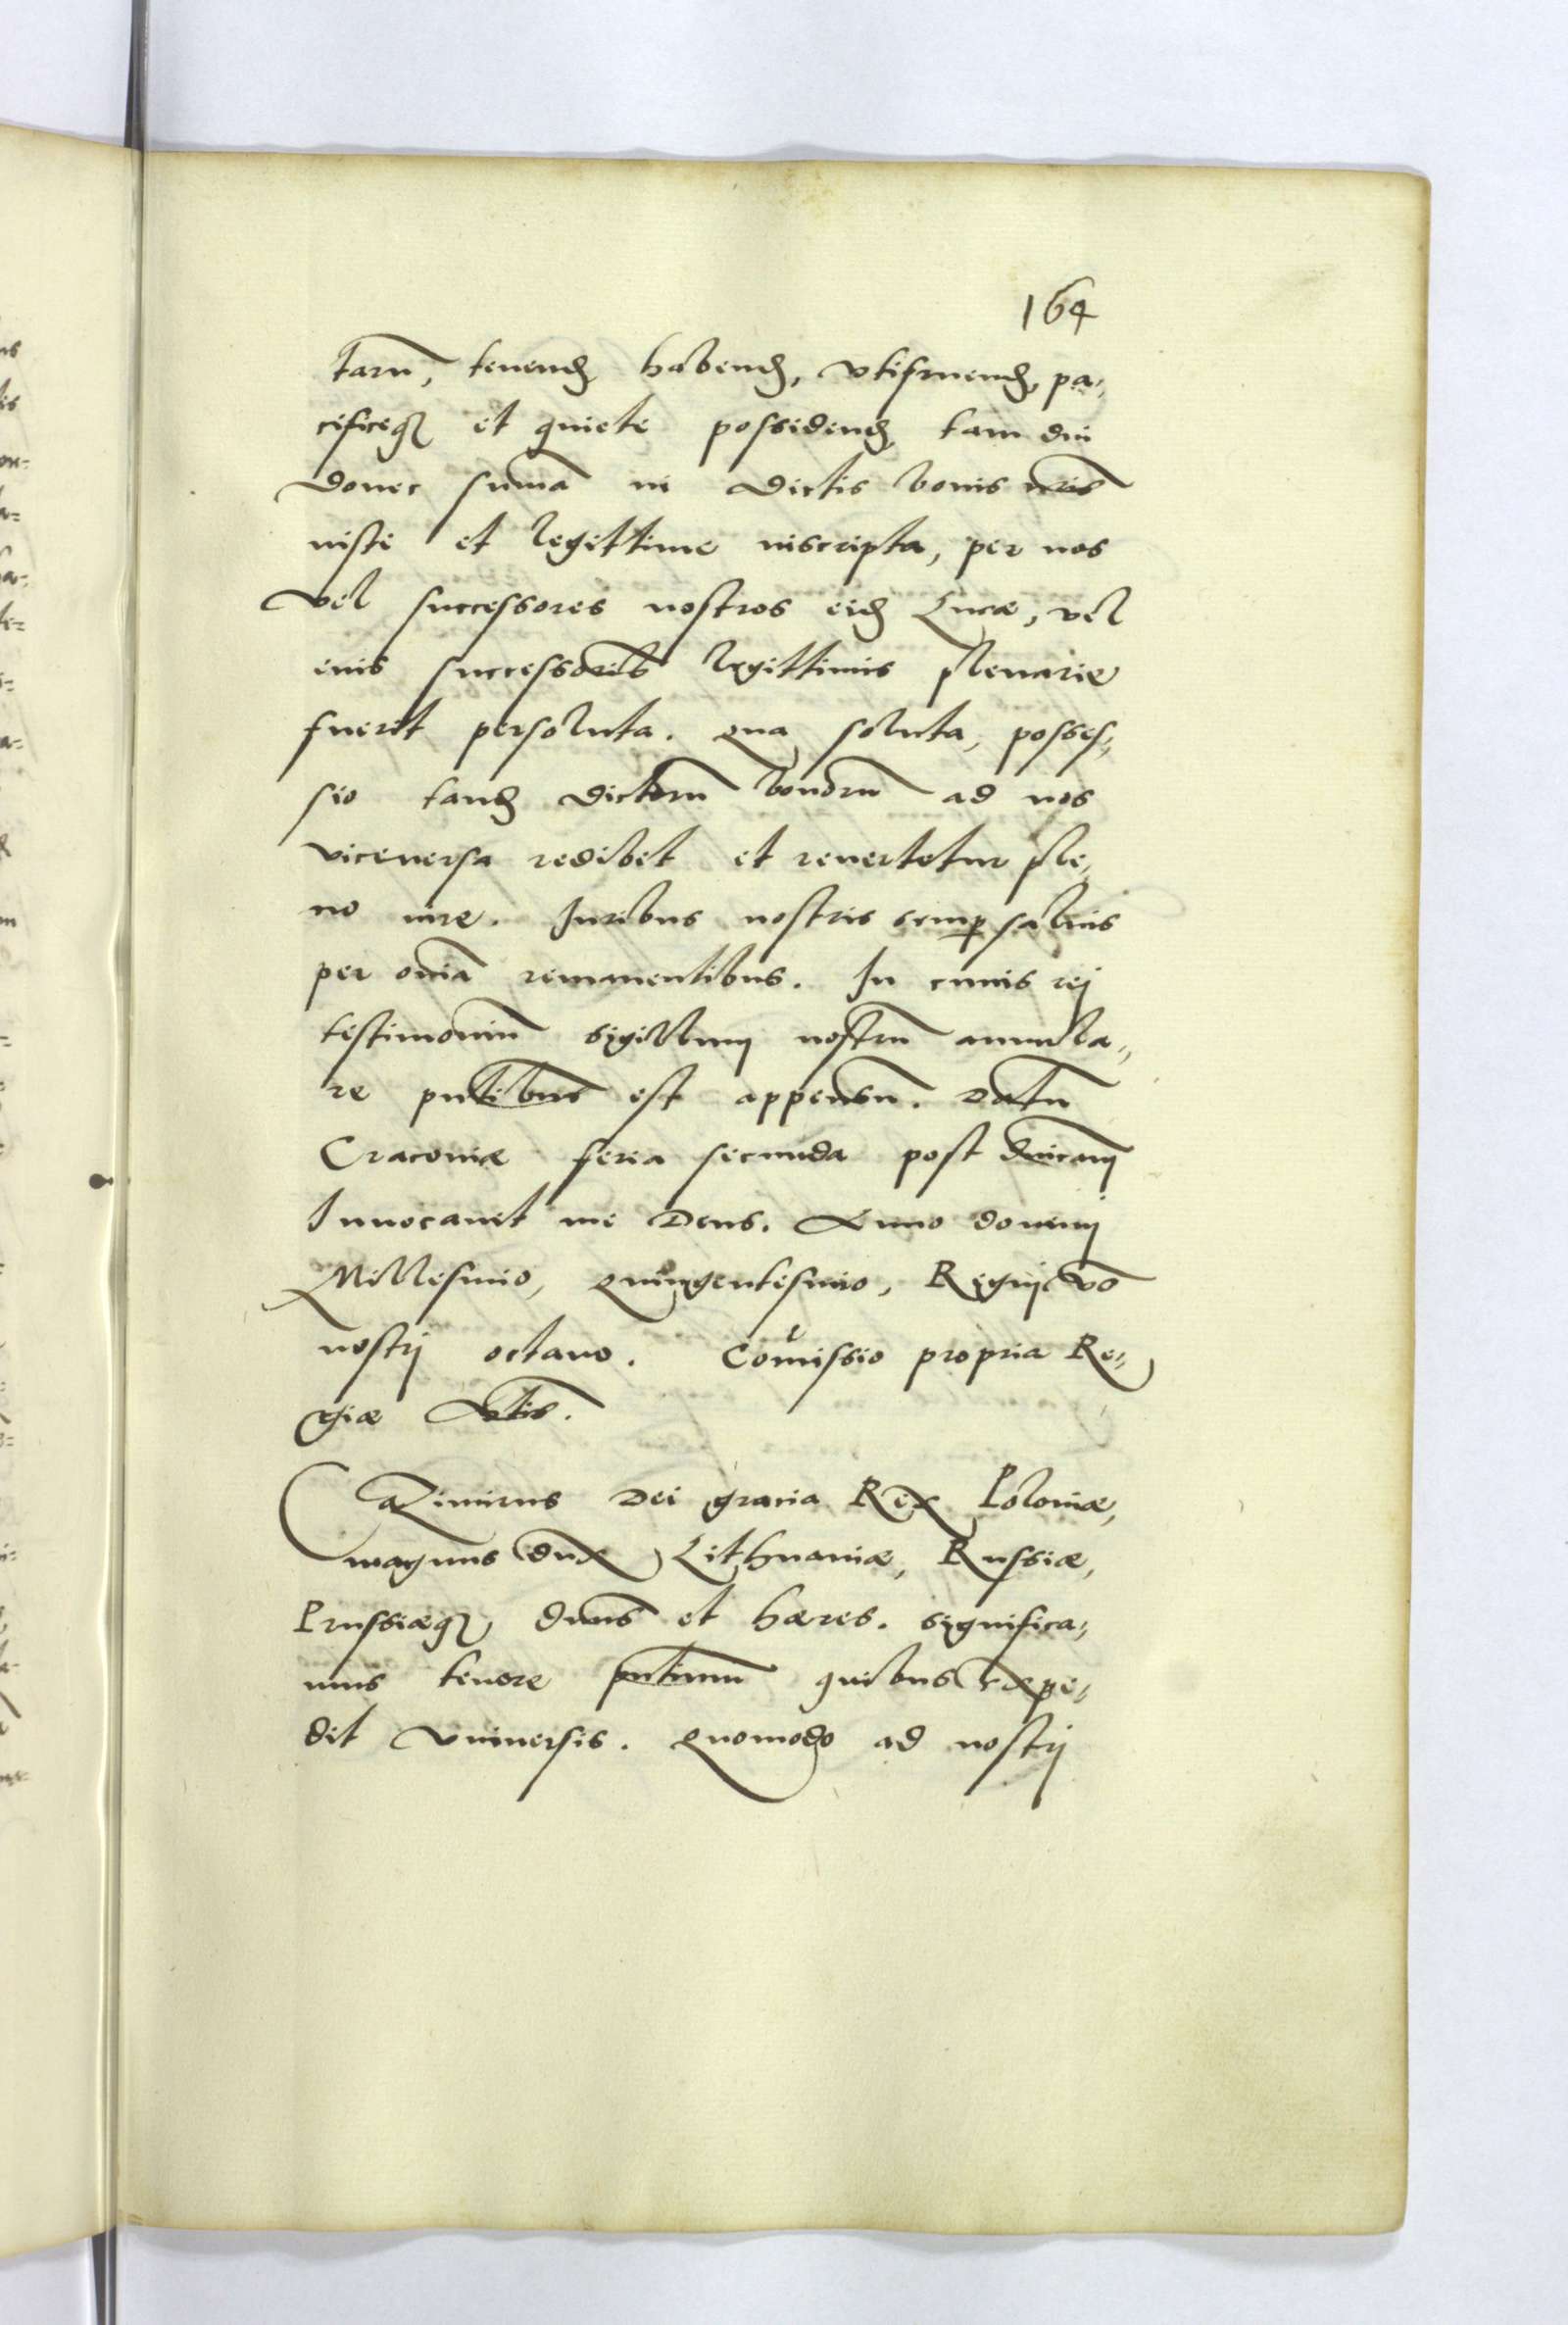 164
tarū, tenendȝ habendȝ, vtifruendȝ, pa„
cificeqȝ et quiete possidendȝ tam diu
donec sumā in dictis bonis nr̄is
iuste et legittime inscripta, per nos
vel successores nostros eidȝ Lucæ, vel
eius successorib9 legittimis plenarie
fuerit persoluta. qua soluta, posses„
sio tandȝ dictorū bonorū ad nos
viceuersa redibet et reuertetur ple„
no iure. Iuribus nostris semꝑ saluis
per om̄ia remanentibus. In cuius rej
testimoniū sigillum nostrū annula„
re pn̄tibus est appensū. Datū
Cracouiæ feria secunda post dn̄icam
Inuocauit me Deus. Anno dominj
Millesimo, quingentesimo, Regnj vō
nostrj octauo. Com̄issio propria Re„
giæ M̄tis.
Cazimirus Dei gracia Rex Poloniæ,
magnus dux Lithuaniæ, Russiæ,
Prussiæqȝ dn̄us et hæres. significa„
mus tenore pn̄tium quibus expe„
dit vniuersis. Quomodo ad nostrj